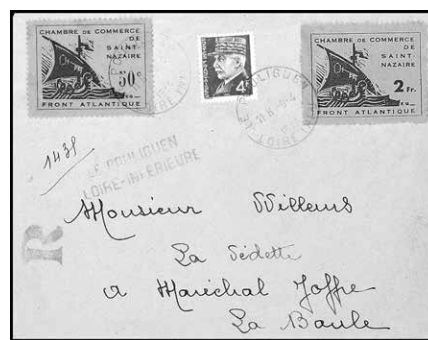 CHAMBRE DE COMMERCE
DE
SAINT-
NAZAIRE
50c
FRONT ATLANTIQUE
4F
CHAMBRE DE COMMERCE
DE
SAINT-
NAZAIRE
2 Fr.
FRONT ATLANTIQUE
LE POULIGUEN
LOIRE
1438
LE POULIGUEN
LOIRE-INFERIEURE
R
Monsieur Willems
La Vedette
a Maréchal Joffre
La Baule